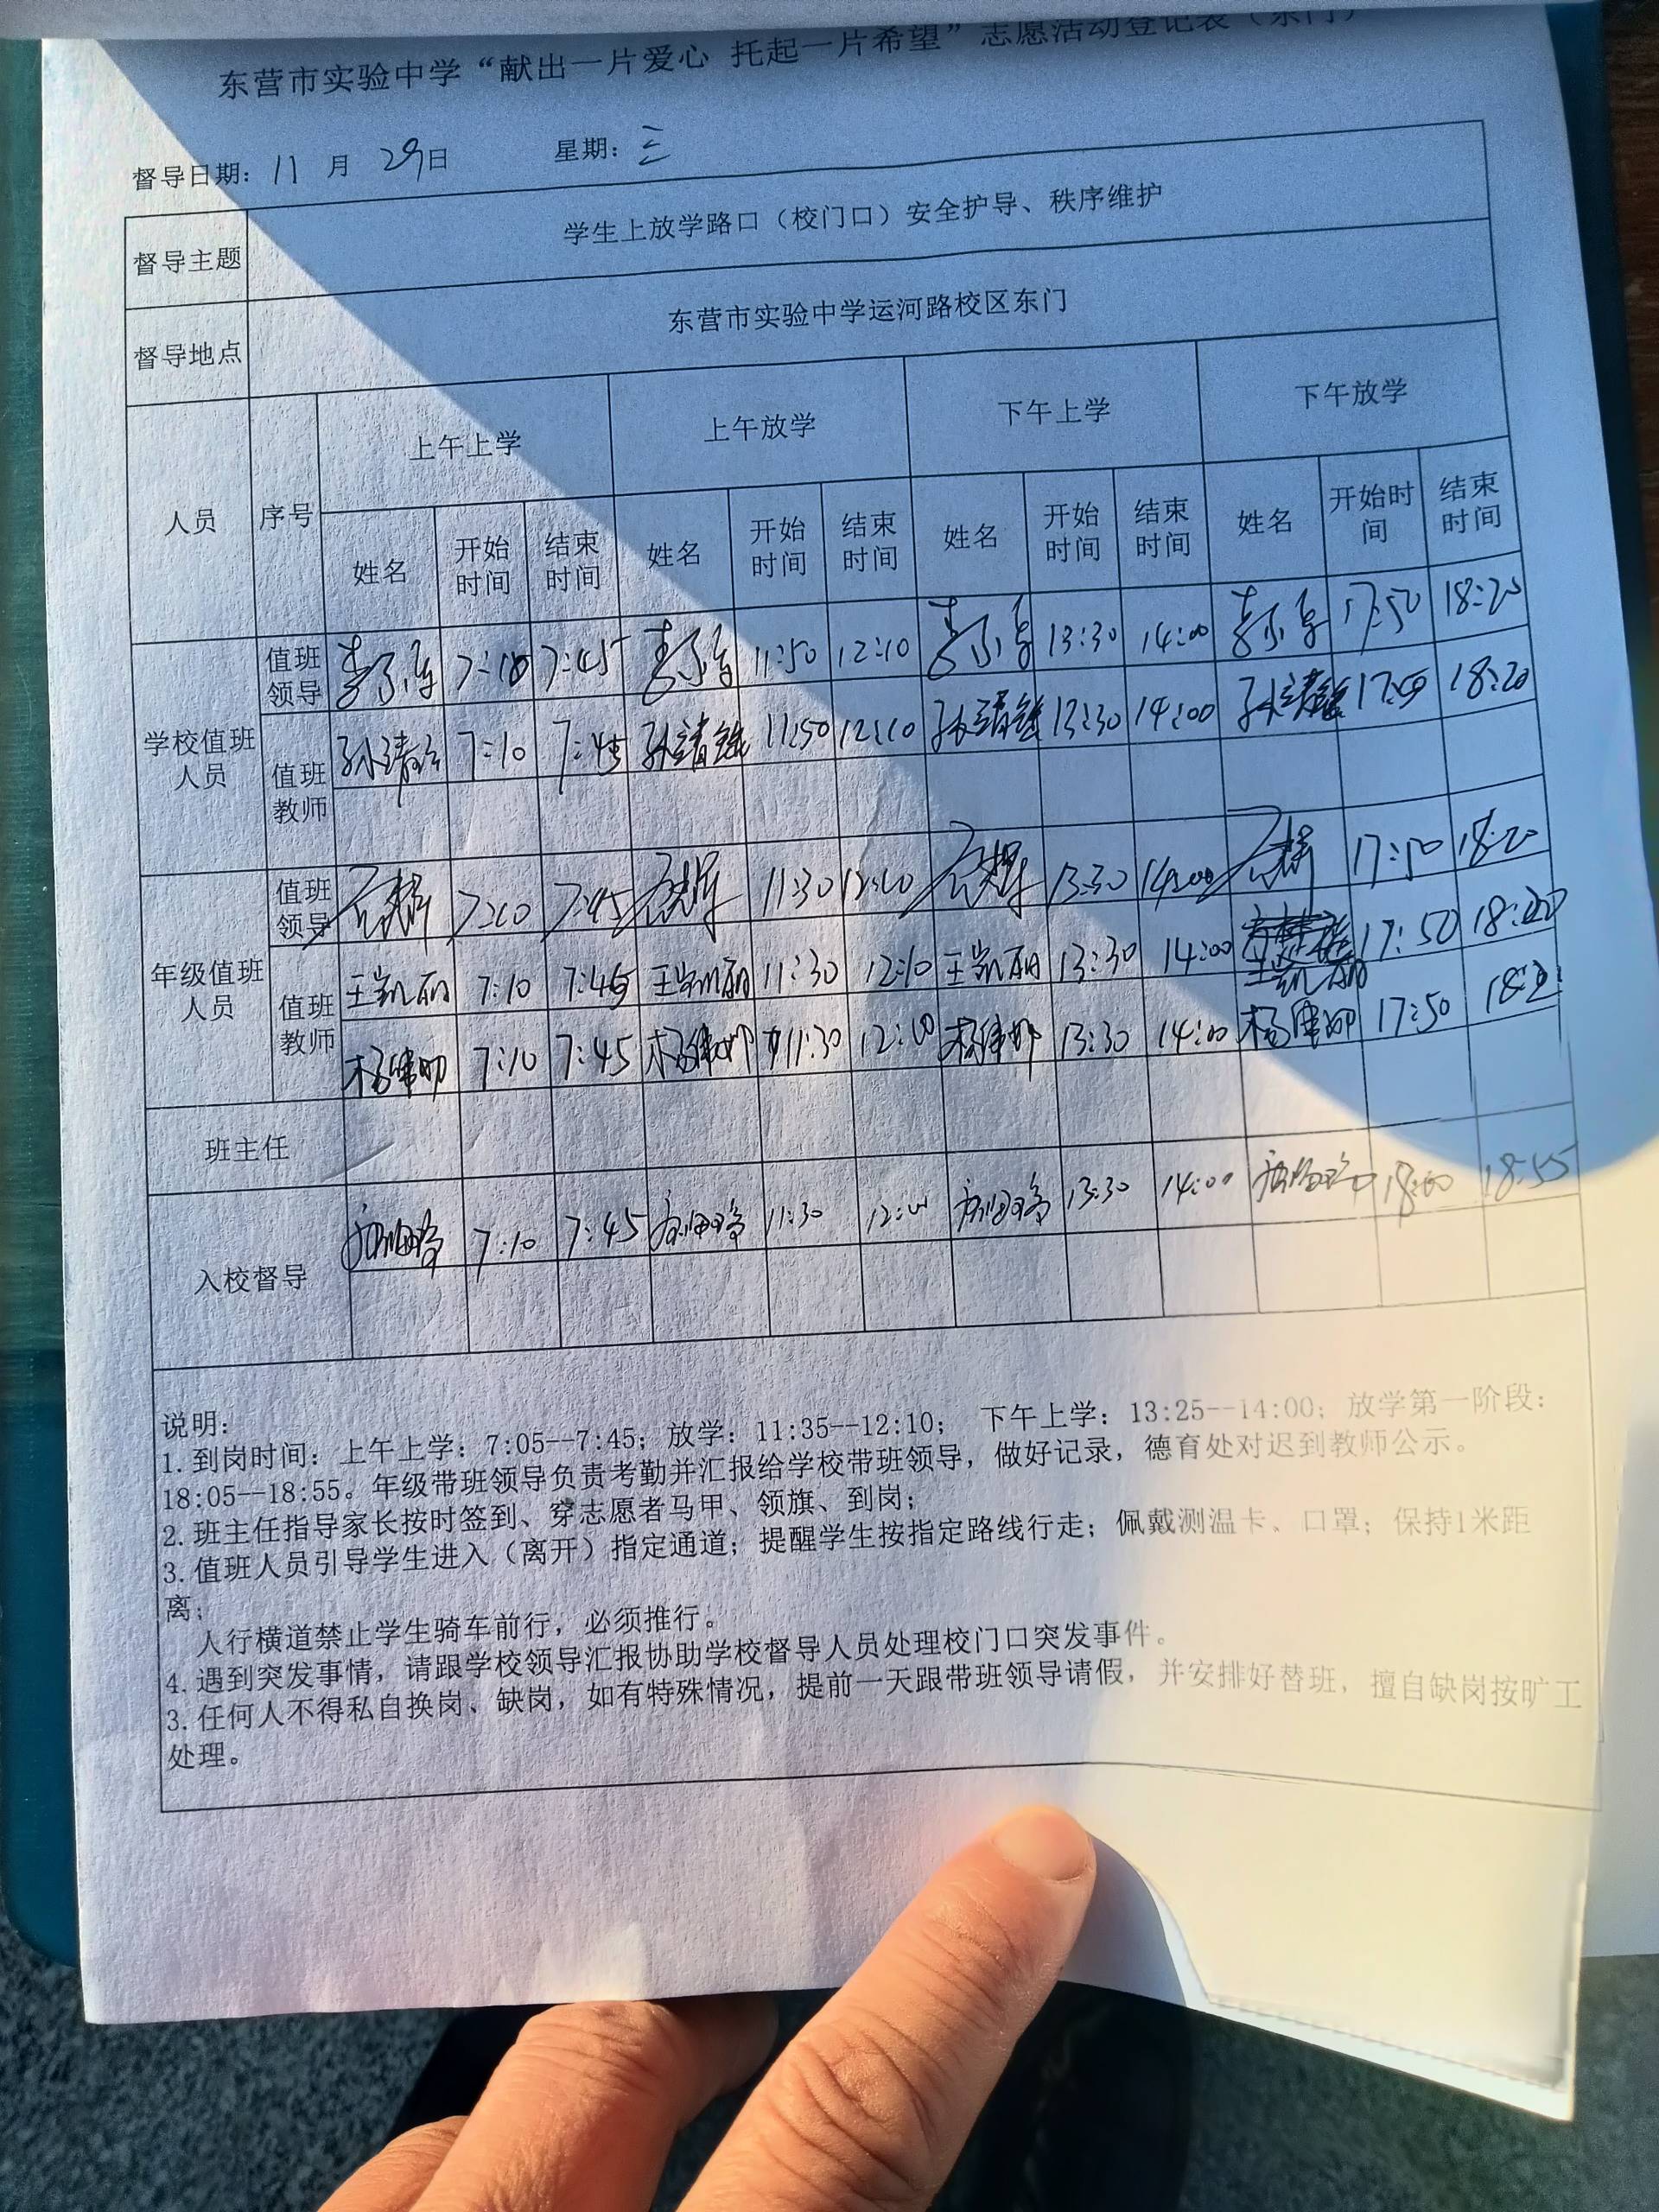 东营市实验中学“献出一片爱心 托起一片希望”志愿活动登记表（东门）
督导日期：11 月 29日 星期：三
督导主题 学生上放学路口（校门口）安全护导、秩序维护
督导地点 东营市实验中学运河路校区东门
人员 序号 上午上学 上午放学 下午上学 下午放学
姓名 开始时间 结束时间 姓名 开始时间 结束时间 姓名 开始时间 结束时间 姓名 开始时间 结束时间
学校值班人员 值班领导 7:10 7:45 11:50 12:10 13:30 14:00 17:50 18:20
值班教师 7:10 7:45 11:50 12:10 13:30 14:00 17:50 18:20
年级值班人员 值班领导 7:10 7:45 11:30 12:10 13:30 14:00 17:50 18:20
值班教师 王凯丽 7:10 7:45 王凯丽 11:30 12:10 王凯丽 13:30 14:00 王凯丽 17:50 18:20
7:10 7:45 11:30 12:10 13:30 14:00 17:50
班主任
入校督导 7:10 7:45 11:30 13:30 14:00 18:00 18:55
说明：
1. 到岗时间：上午上学：7:05--7:45；放学：11:35--12:10； 下午上学：13:25--14:00；放学第一阶段：
18:05--18:55。年级带班领导负责考勤并汇报给学校带班领导，做好记录，德育处对迟到教师公示。
2. 班主任指导家长按时签到、穿志愿者马甲、领旗、到岗；
3. 值班人员引导学生进入（离开）指定通道；提醒学生按指定路线行走；佩戴测温卡、口罩；保持1米距
离；
人行横道禁止学生骑车前行，必须推行。
4. 遇到突发事情，请跟学校领导汇报协助学校督导人员处理校门口突发事件。
3. 任何人不得私自换岗、缺岗，如有特殊情况，提前一天跟带班领导请假，并安排好替班，擅自缺岗按旷工
处理。